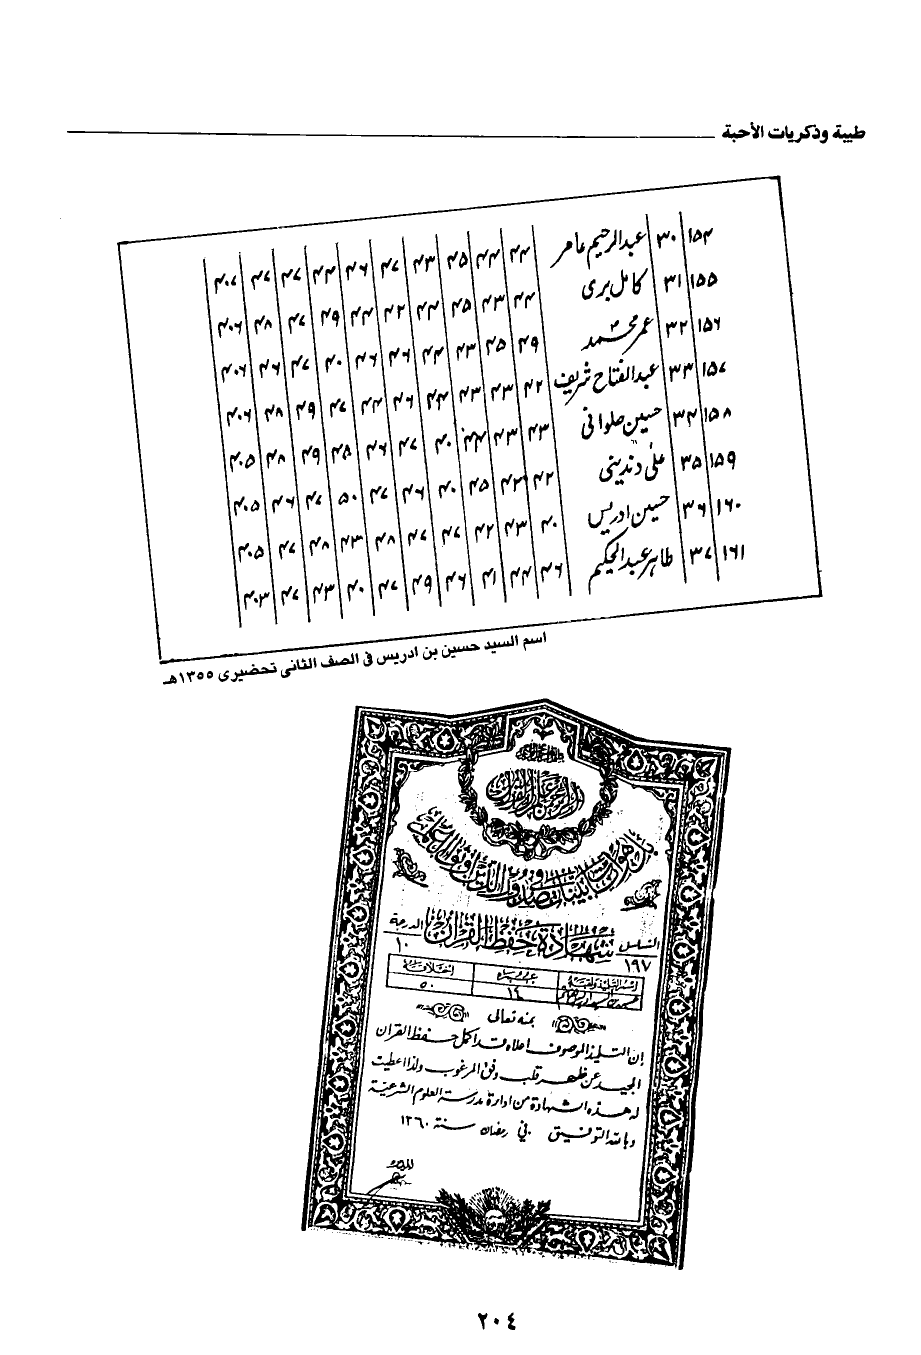 طيبة وذكريات الأحبة
١٥٤ ٣٠ عبدالرحيم عامر ٤٤ ٤٤ ٤٥ ٤٣ ٤٧ ٤٦ ٤٤ ٤٧ ٤٧ ٤٠٧
١٥٥ ٣١ كامل بري ٤٤ ٤٣ ٤٥ ٤٤ ٤٢ ٤٤ ٤٩ ٤٧ ٤٨ ٤٠٦
١٥٦ ٣٢ عمر محمد ٤٩ ٤٥ ٤٣ ٤٤ ٤٦ ٤٦ ٤٠ ٤٧ ٤٦ ٤٠٦
١٥٧ ٣٣ عبدالفتاح شريف ٤٢ ٤٣ ٤٣ ٤٤ ٤٦ ٤٤ ٤٧ ٤٩ ٤٨ ٤٠٦
١٥٨ ٣٤ حسين حلواني ٤٣ ٤٣ ٤٤ ٤٠ ٤٧ ٤٦ ٤٥ ٤٩ ٤٨ ٤٠٥
١٥٩ ٣٥ على دنديني ٤٢ ٤٣ ٤٥ ٤٠ ٤٦ ٤٧ ٥٠ ٤٧ ٤٦ ٤٠٥
١٦٠ ٣٦ حسين ادريس ٤٠ ٤٣ ٤٢ ٤٧ ٤٧ ٤٨ ٤٣ ٤٨ ٤٧ ٤٠٥
١٦١ ٣٧ طاهر عبدالحكيم ٤٦ ٤٤ ٤١ ٤٦ ٤٩ ٤٧ ٤٠ ٤٣ ٤٧ ٤٠٣
اسم السيد حسين بن ادريس في الصف الثاني تحضيري ١٣٥٥هـ
الرحمن علم القرآن
بل هو آيات بينات في صدور الذين أوتوا العلم
شهادة حفظ القرآن
الدرجة
١٠
١٩٧
اسم التلميذ ولقبه عمره اخلاقه
١٤ ٥٠
بمنه تعالى
إن التلميذ الموصوف اعلاه قد اكمل حفظ القرآن
المجيد عن ظهر قلب وفق المرغوب ولذا اعطيت
له هذه الشهادة من ادارة مدرسة العلوم الشرعية
وبالله التوفيق في رمضان سنة ١٣٦٠
المدير
٢٠٤